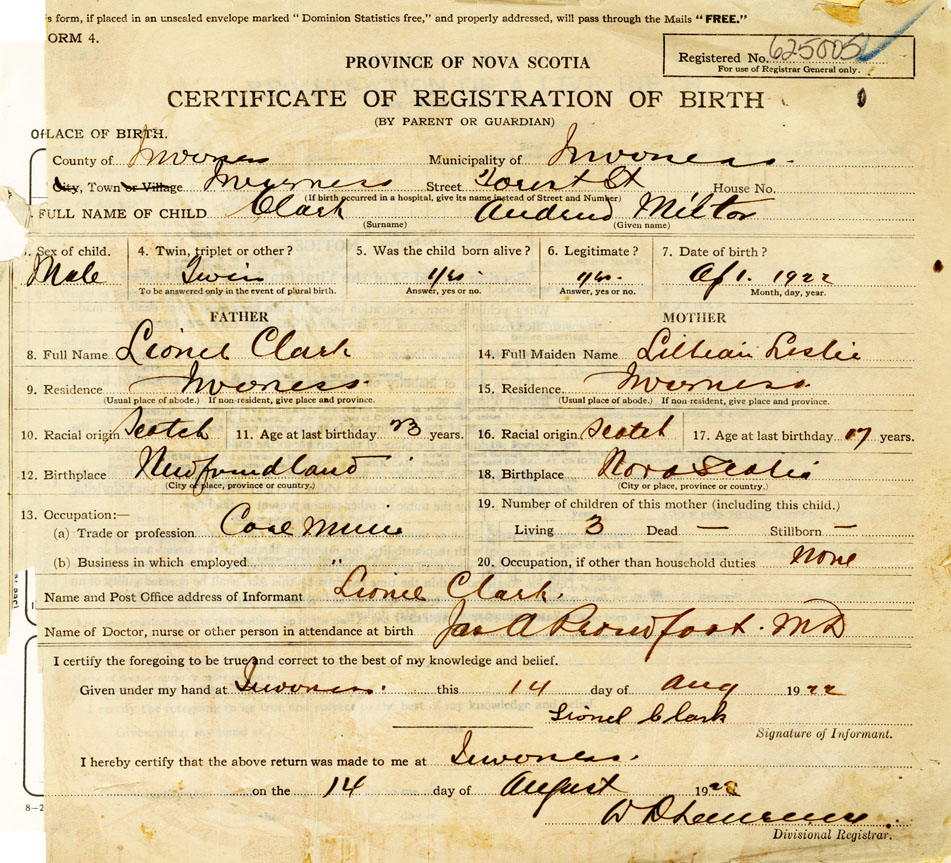 s form, if placed in an unsealed envelope marked "Dominion Statistics free," and properly addressed, will pass through the Mails "FREE."
ORM 4.
Registered No. 625005
For use of Registrar General only.
PROVINCE OF NOVA SCOTIA
CERTIFICATE OF REGISTRATION OF BIRTH
(BY PARENT OR GUARDIAN)
PLACE OF BIRTH.
County of Inverness Municipality of Inverness
City, Town or Village Inverness Street Forest St House No.
(If birth occurred in a hospital, give its name instead of Street and Number)
FULL NAME OF CHILD Clark Milton
(Surname) (Given name)
Sex of child. 4. Twin, triplet or other? 5. Was the child born alive? 6. Legitimate? 7. Date of birth?
Male Twin yes yes 1922
To be answered only in the event of plural birth. Answer, yes or no. Answer, yes or no. Month, day, year.
FATHER MOTHER
8. Full Name Lionel Clark 14. Full Maiden Name Lillian Leslie
9. Residence Inverness 15. Residence Inverness
(Usual place of abode.) If non-resident, give place and province. (Usual place of abode.) If non-resident, give place and province.
10. Racial origin Scotch 11. Age at last birthday 23 years. 16. Racial origin Scotch 17. Age at last birthday years.
12. Birthplace Newfoundland 18. Birthplace Nova Scotia
(City or place, province or country.) (City or place, province or country.)
19. Number of children of this mother (including this child.)
13. Occupation:—
(a) Trade or profession Coal Living 3 Dead — Stillborn —
(b) Business in which employed " 20. Occupation, if other than household duties None
Name and Post Office address of Informant Lionel Clark.
Name of Doctor, nurse or other person in attendance at birth Jas A Proudfoot. MD
I certify the foregoing to be true and correct to the best of my knowledge and belief.
Given under my hand at Inverness. this 14 day of Aug 1922
Lionel Clark
Signature of Informant.
I hereby certify that the above return was made to me at Inverness.
on the 14 day of August 1922
Divisional Registrar.
8-2